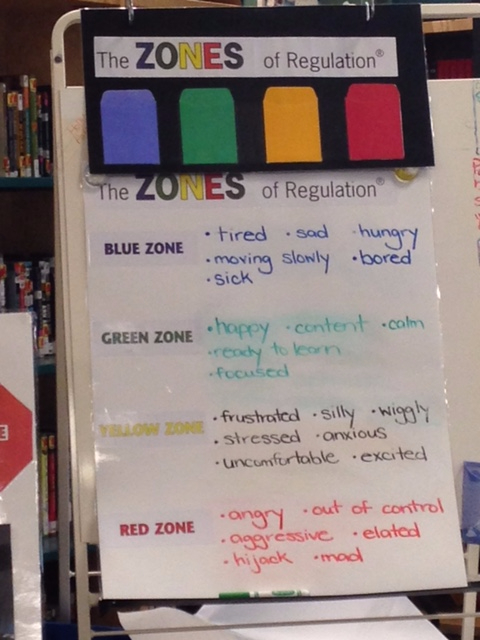 The ZONES of Regulation®
The ZONES of Regulation®
BLUE ZONE
• tired • sad • hungry
• moving slowly • bored
• sick
GREEN ZONE
• happy • content • calm
• ready to learn
• focused
YELLOW ZONE
• frustrated • silly • wiggly
• stressed • anxious
• uncomfortable • excited
RED ZONE
• angry • out of control
• aggressive • elated
• hijack • mad